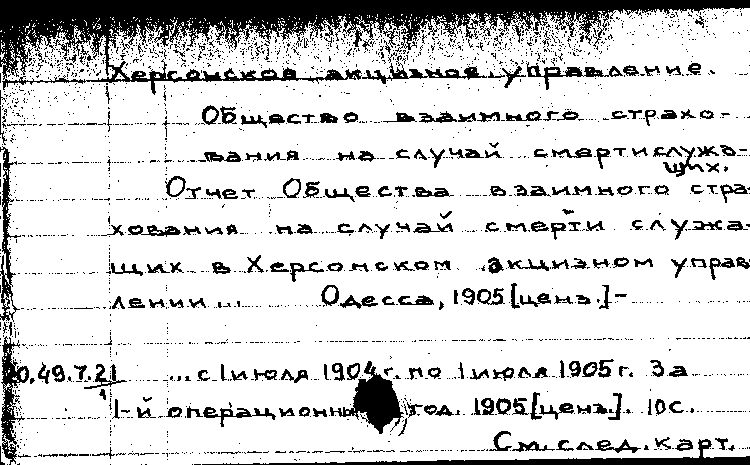 Херсонское акцизное управление.
Общество взаимного страхо-
вания на случай смерти служа-
щих.
Отчет Общества взаимного стра-
хования на случай смерти служа-
щих в Херсонском акцизном управ-
лении... Одесса, 1905 [ценз.]-
20.49.7.21 ...с 1 июля 1904 г. по 1 июля 1905 г. За
1
1-й операционный год. 1905 [ценз.]. 10 с.
См. след. карт.